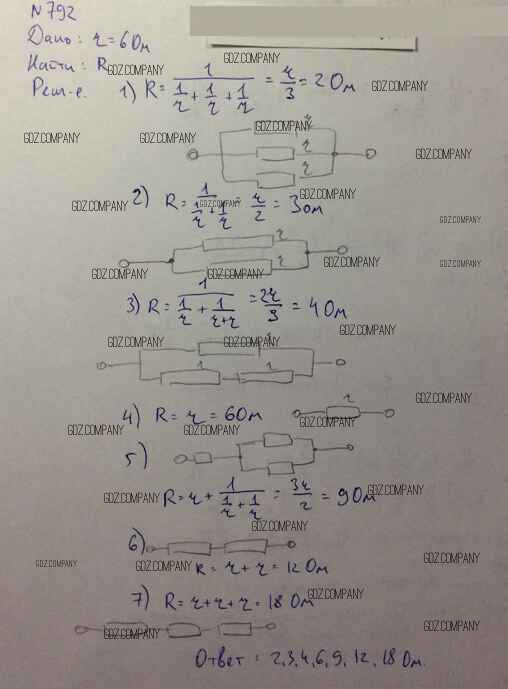 N 792
Дано: r = 6 Ом
Найти: R
Реш-е. 1) R = 1/(1/r + 1/r + 1/r) = r/3 = 2 Ом
r
r
r
2) R = 1/(1/r + 1/r) = r/2 = 3 Ом
r
r
3) R = 1/(1/r + 1/(r+r)) = 2r/3 = 4 Ом
r
r r
4) R = r = 6 Ом
r
5)
R = r + 1/(1/r + 1/r) = 3r/2 = 9 Ом
6)
R = r + r = 12 Ом
7) R = r + r + r = 18 Ом
Ответ: 2, 3, 4, 6, 9, 12, 18 Ом.
GDZ.COMPANY